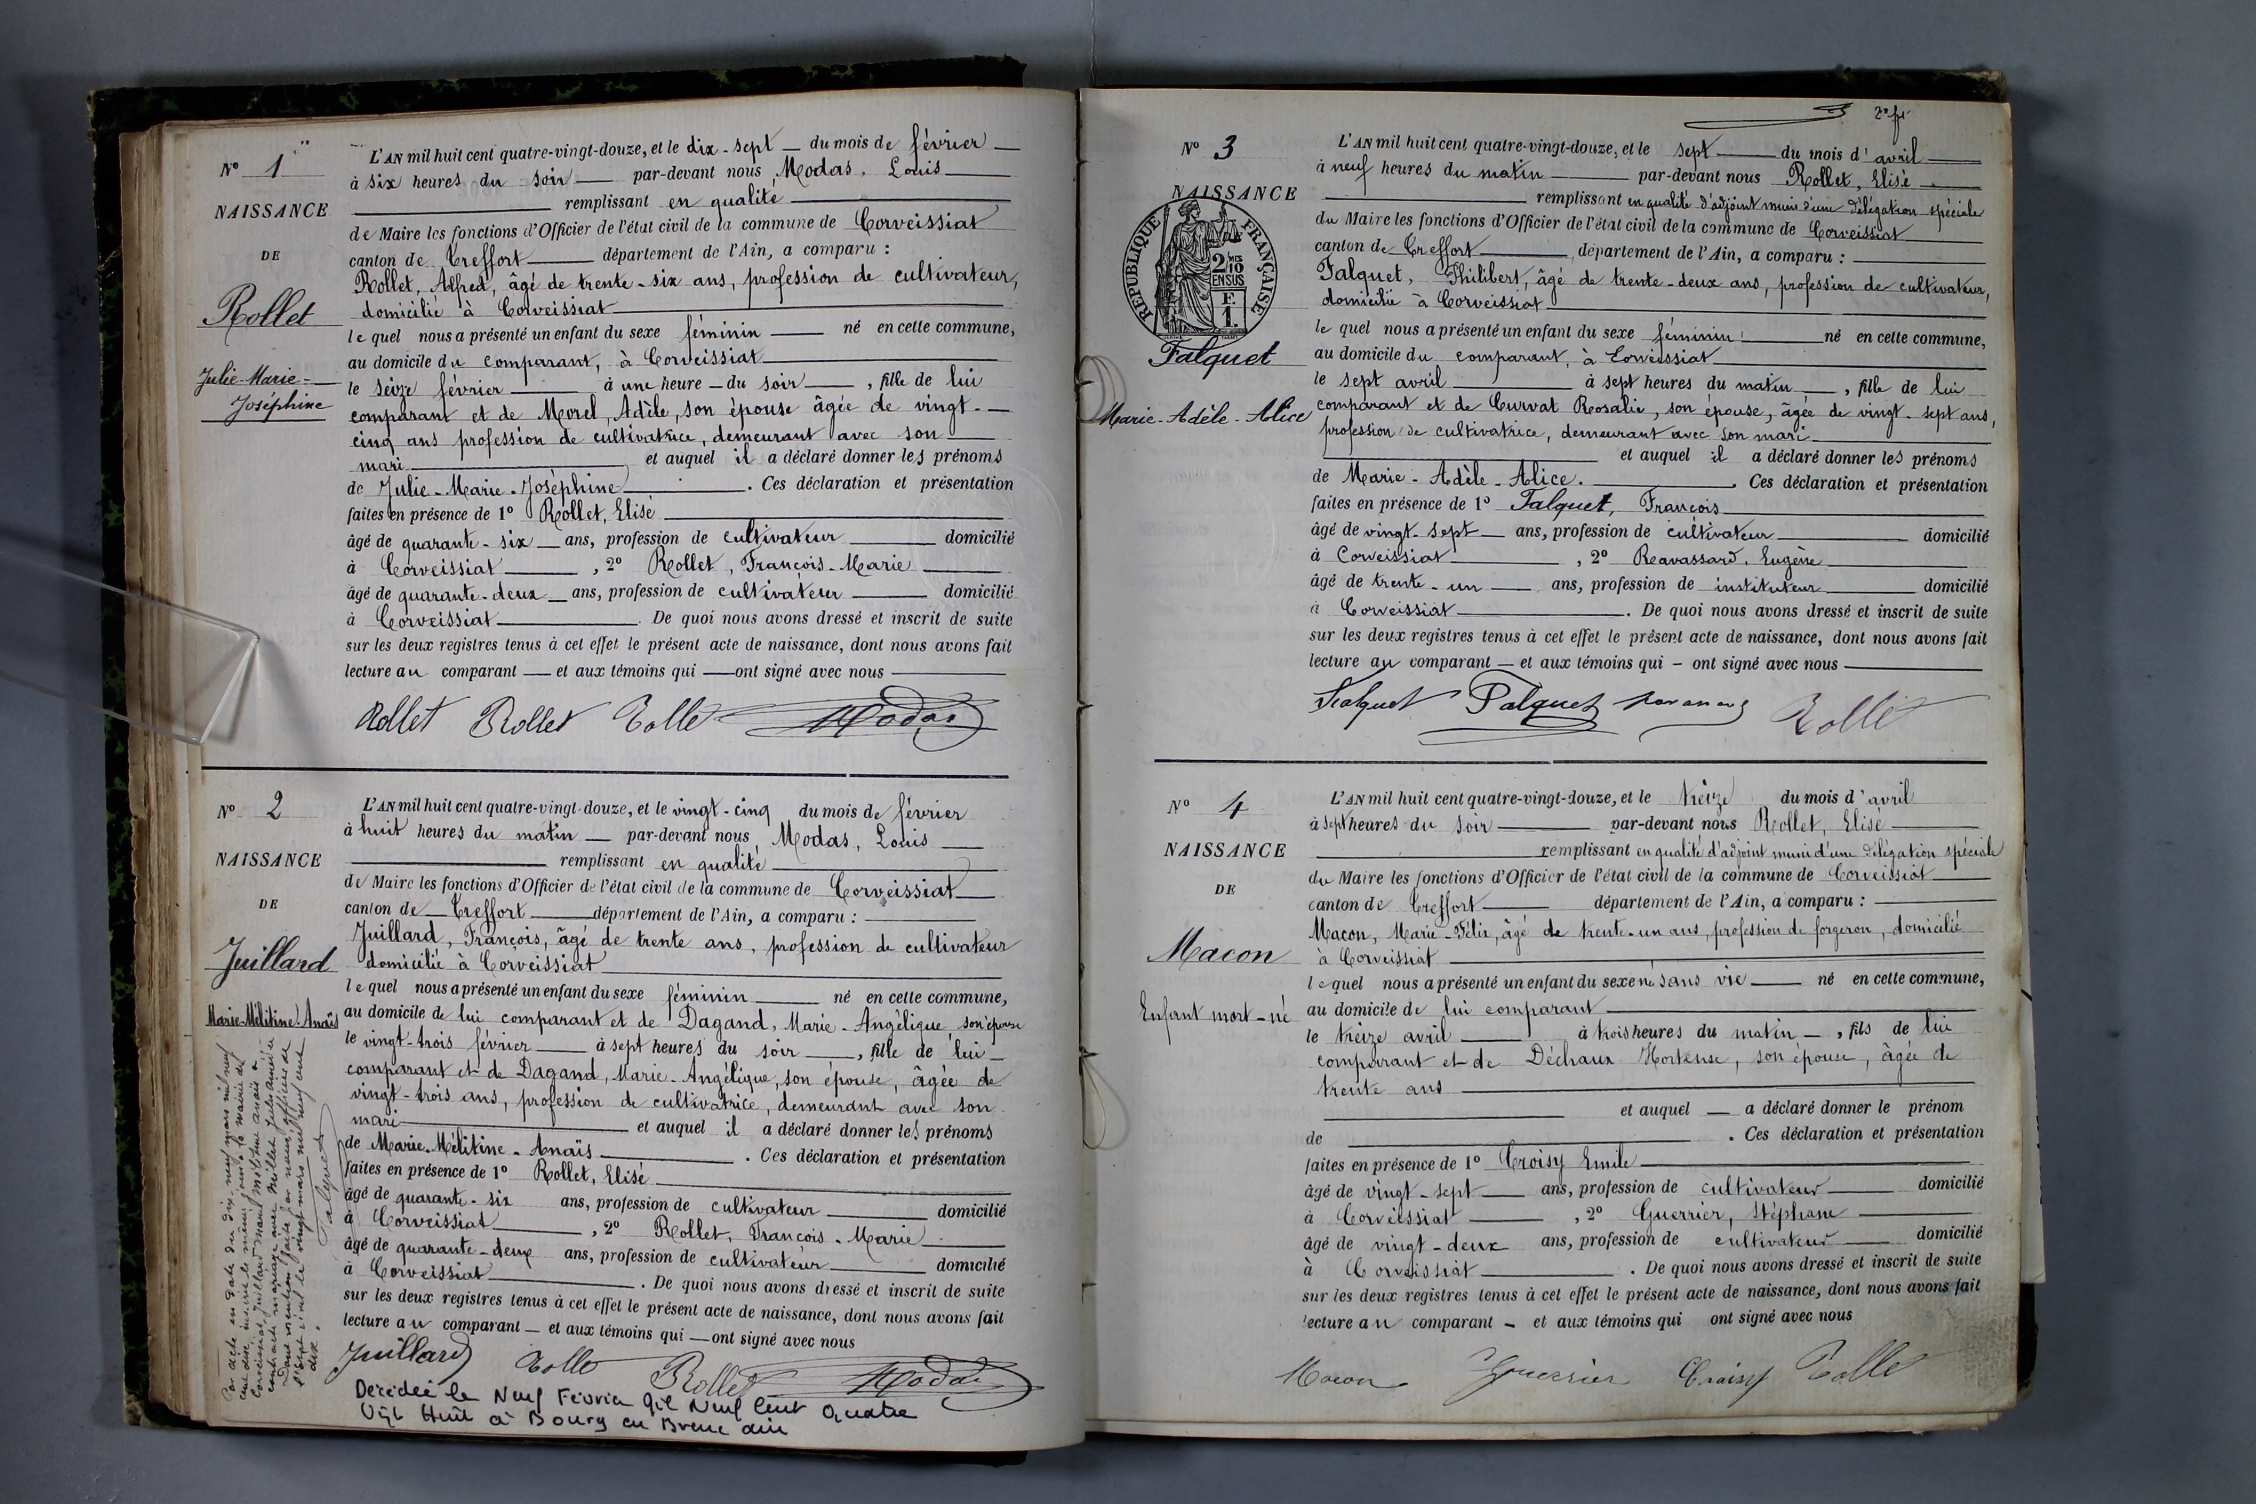 N° 1
NAISSANCE
DE
Rollet
Julie-Marie-
Joséphine
L'AN mil huit cent quatre-vingt-douze, et le dix-sept du mois de février
à six heures du soir par-devant nous Modas, Louis
remplissant en qualité
de Maire les fonctions d'Officier de l'état civil de la commune de Corveissiat
canton de Treffort département de l'Ain, a comparu :
Rollet, Alfred, âgé de trente-six ans, profession de cultivateur,
domicilié à Corveissiat
lequel nous a présenté un enfant du sexe féminin né en cette commune,
au domicile du comparant, à Corveissiat
le seize février à une heure du soir, fille de lui
comparant et de Morel, Adèle, son épouse âgée de vingt-
cinq ans profession de cultivatrice, demeurant avec son
mari et auquel il a déclaré donner les prénoms
de Julie-Marie-Joséphine. Ces déclaration et présentation
faites en présence de 1° Rollet, Elisé
âgé de quarante-six ans, profession de cultivateur domicilié
à Corveissiat, 2° Rollet, François-Marie
âgé de quarante-deux ans, profession de cultivateur domicilié
à Corveissiat. De quoi nous avons dressé et inscrit de suite
sur les deux registres tenus à cet effet le présent acte de naissance, dont nous avons fait
lecture au comparant et aux témoins qui ont signé avec nous
Rollet Rollet Rollet Modas
N° 2
NAISSANCE
DE
Juillard
Marie-Mélitine-Anaïs
L'AN mil huit cent quatre-vingt-douze, et le vingt-cinq du mois de février
à huit heures du matin par-devant nous Modas, Louis
remplissant en qualité
de Maire les fonctions d'Officier de l'état civil de la commune de Corveissiat
canton de Treffort département de l'Ain, a comparu :
Juillard, François, âgé de trente ans, profession de cultivateur
domicilié à Corveissiat
lequel nous a présenté un enfant du sexe féminin né en cette commune,
au domicile de lui comparant et de Dagand, Marie-Angélique son épouse
le vingt-trois février à sept heures du soir, fille de lui
comparant et de Dagand, Marie-Angélique, son épouse, âgée de
vingt-trois ans, profession de cultivatrice, demeurant avec son
mari et auquel il a déclaré donner les prénoms
de Marie-Mélitine-Anaïs. Ces déclaration et présentation
faites en présence de 1° Rollet, Elisé
âgé de quarante-six ans, profession de cultivateur domicilié
à Corveissiat, 2° Rollet, François-Marie
âgé de quarante-deux ans, profession de cultivateur domicilié
à Corveissiat. De quoi nous avons dressé et inscrit de suite
sur les deux registres tenus à cet effet le présent acte de naissance, dont nous avons fait
lecture au comparant et aux témoins qui ont signé avec nous
Juillard Rollet Rollet Modas
Décédée le Neuf Février Mil Neuf Cent Quatre
Vingt Huit à Bourg en Bresse ain
Par acte en date du dix-neuf mars mil neuf
cent dix, inscrit le même jour à la mairie de
Corveissiat, Juillard Marie Mélitine Anaïs a
contracté mariage avec Millet
Dont mention faite par nous, officier de
l'état civil le vingt mars mil neuf cent
dix.
Falquet
N° 3
NAISSANCE
RÉPUBLIQUE FRANÇAISE
2/10
EN SUS
F.
1.
Falquet
Marie-Adèle-Alice
L'AN mil huit cent quatre-vingt-douze, et le sept du mois d'avril
à neuf heures du matin par-devant nous Rollet, Elisé
remplissant en qualité d'adjoint muni d'une délégation spéciale
du Maire les fonctions d'Officier de l'état civil de la commune de Corveissiat
canton de Treffort département de l'Ain, a comparu :
Falquet, Philibert, âgé de trente-deux ans, profession de cultivateur,
domicilié à Corveissiat
lequel nous a présenté un enfant du sexe féminin né en cette commune,
au domicile du comparant, à Corveissiat
le sept avril à sept heures du matin, fille de lui
comparant et de Curvat Rosalie, son épouse, âgée de vingt-sept ans,
profession de cultivatrice, demeurant avec son mari
et auquel il a déclaré donner les prénoms
de Marie-Adèle-Alice. Ces déclaration et présentation
faites en présence de 1° Falquet, François
âgé de vingt-sept ans, profession de cultivateur domicilié
à Corveissiat, 2° Ravassard, Eugène
âgé de trente-un ans, profession de instituteur domicilié
à Corveissiat. De quoi nous avons dressé et inscrit de suite
sur les deux registres tenus à cet effet le présent acte de naissance, dont nous avons fait
lecture au comparant et aux témoins qui ont signé avec nous
Falquet Falquet Rollet
N° 4
NAISSANCE
DE
Macon
Enfant mort-né
L'AN mil huit cent quatre-vingt-douze, et le treize du mois d'avril
à sept heures du soir par-devant nous Rollet, Elisé
remplissant en qualité d'adjoint muni d'une délégation spéciale
du Maire les fonctions d'Officier de l'état civil de la commune de Corveissiat
canton de Treffort département de l'Ain, a comparu :
Macon, Marie-Félix, âgé de trente-un ans, profession de forgeron, domicilié
à Corveissiat
lequel nous a présenté un enfant du sexe né sans vie né en cette commune,
au domicile de lui comparant
le treize avril à trois heures du matin, fils de lui
comparant et de Déchaux Hortense, son épouse, âgée de
trente ans
et auquel a déclaré donner le prénom
de . Ces déclaration et présentation
faites en présence de 1° Croisy Emile
âgé de vingt-sept ans, profession de cultivateur domicilié
à Corveissiat, 2° Guerrier, Stéphane
âgé de vingt-deux ans, profession de cultivateur domicilié
à Corveissiat. De quoi nous avons dressé et inscrit de suite
sur les deux registres tenus à cet effet le présent acte de naissance, dont nous avons fait
lecture au comparant et aux témoins qui ont signé avec nous
Macon Guerrier Croisy Rollet